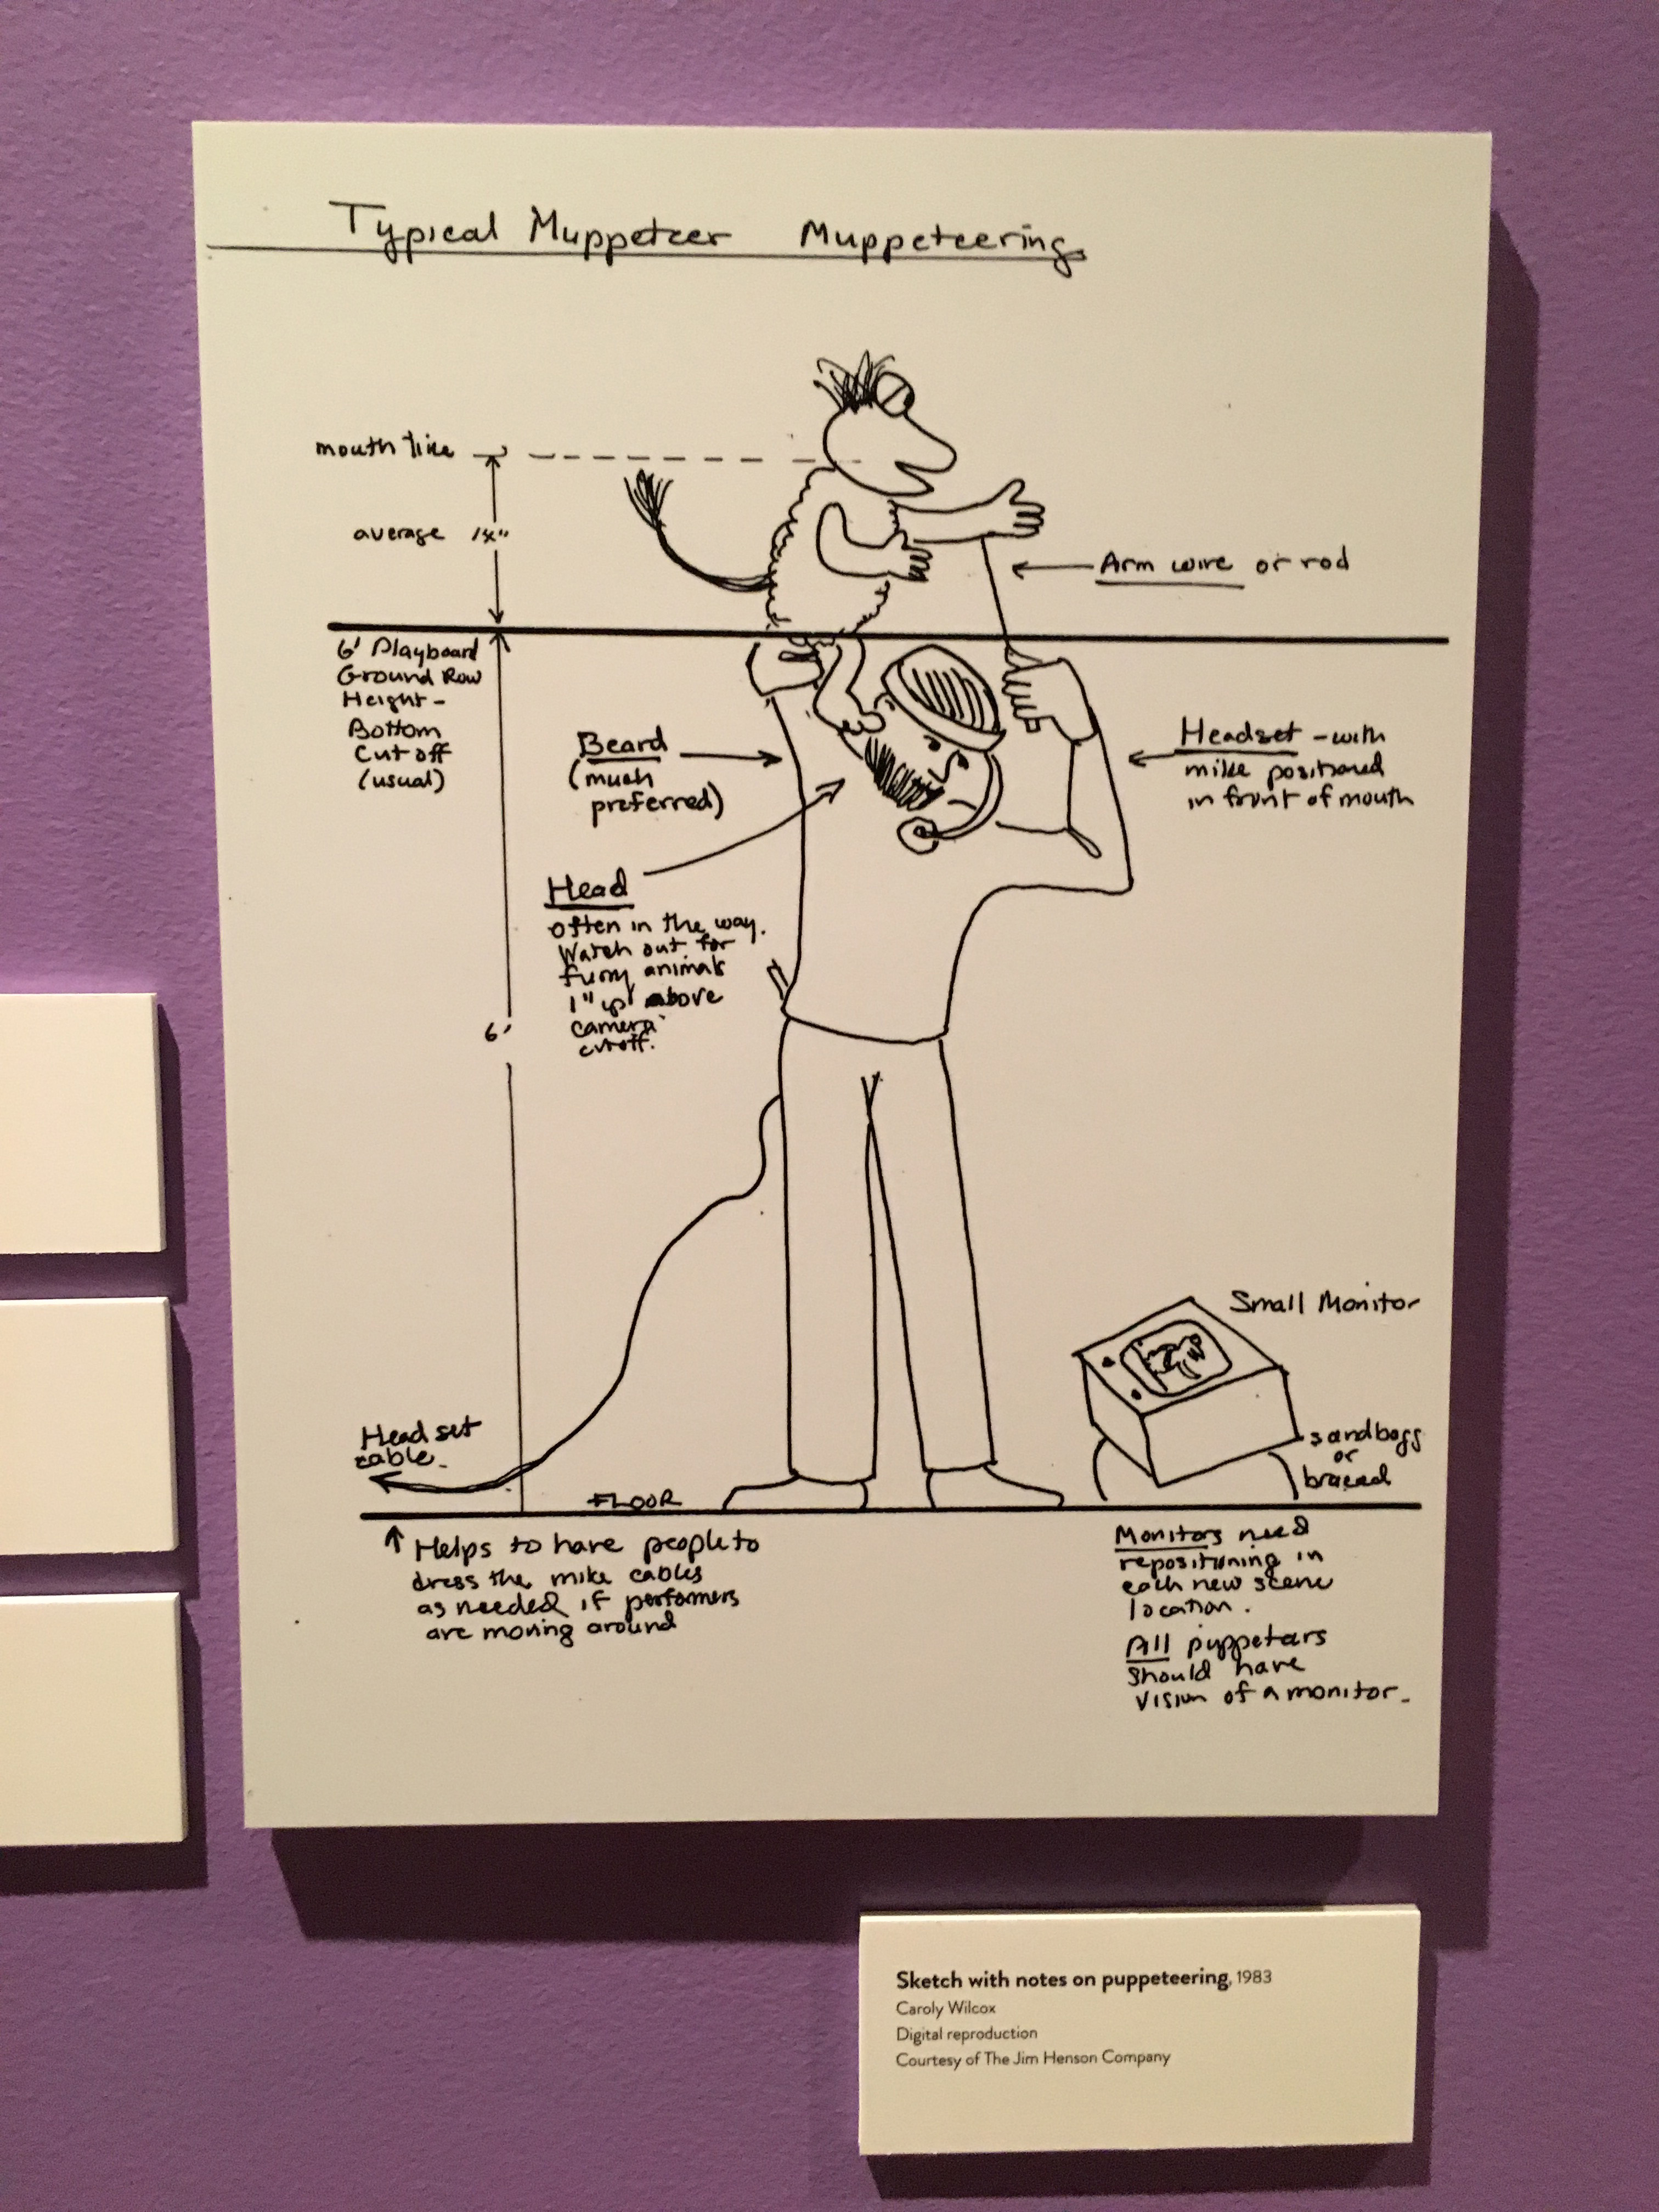 Typical Muppeteer Muppeteering
mouth line
average 14"
Arm wire or rod
6' Playboard
Ground Row
Height-
Bottom
Cut off
(usual)
Beard
(much
preferred)
Headset - with
mike positioned
in front of mouth
Head
often in the way.
Watch out for
furry animals
1" up above
camera
cutoff.
6'
Small Monitor
Head set
cable.
sandbags
or
braced
FLOOR
Helps to have people to
dress the mike cables
as needed if performers
are moving around
Monitors need
repositioning in
each new scene
location.
All puppetars
should have
vision of a monitor.
Sketch with notes on puppeteering, 1983
Caroly Wilcox
Digital reproduction
Courtesy of The Jim Henson Company